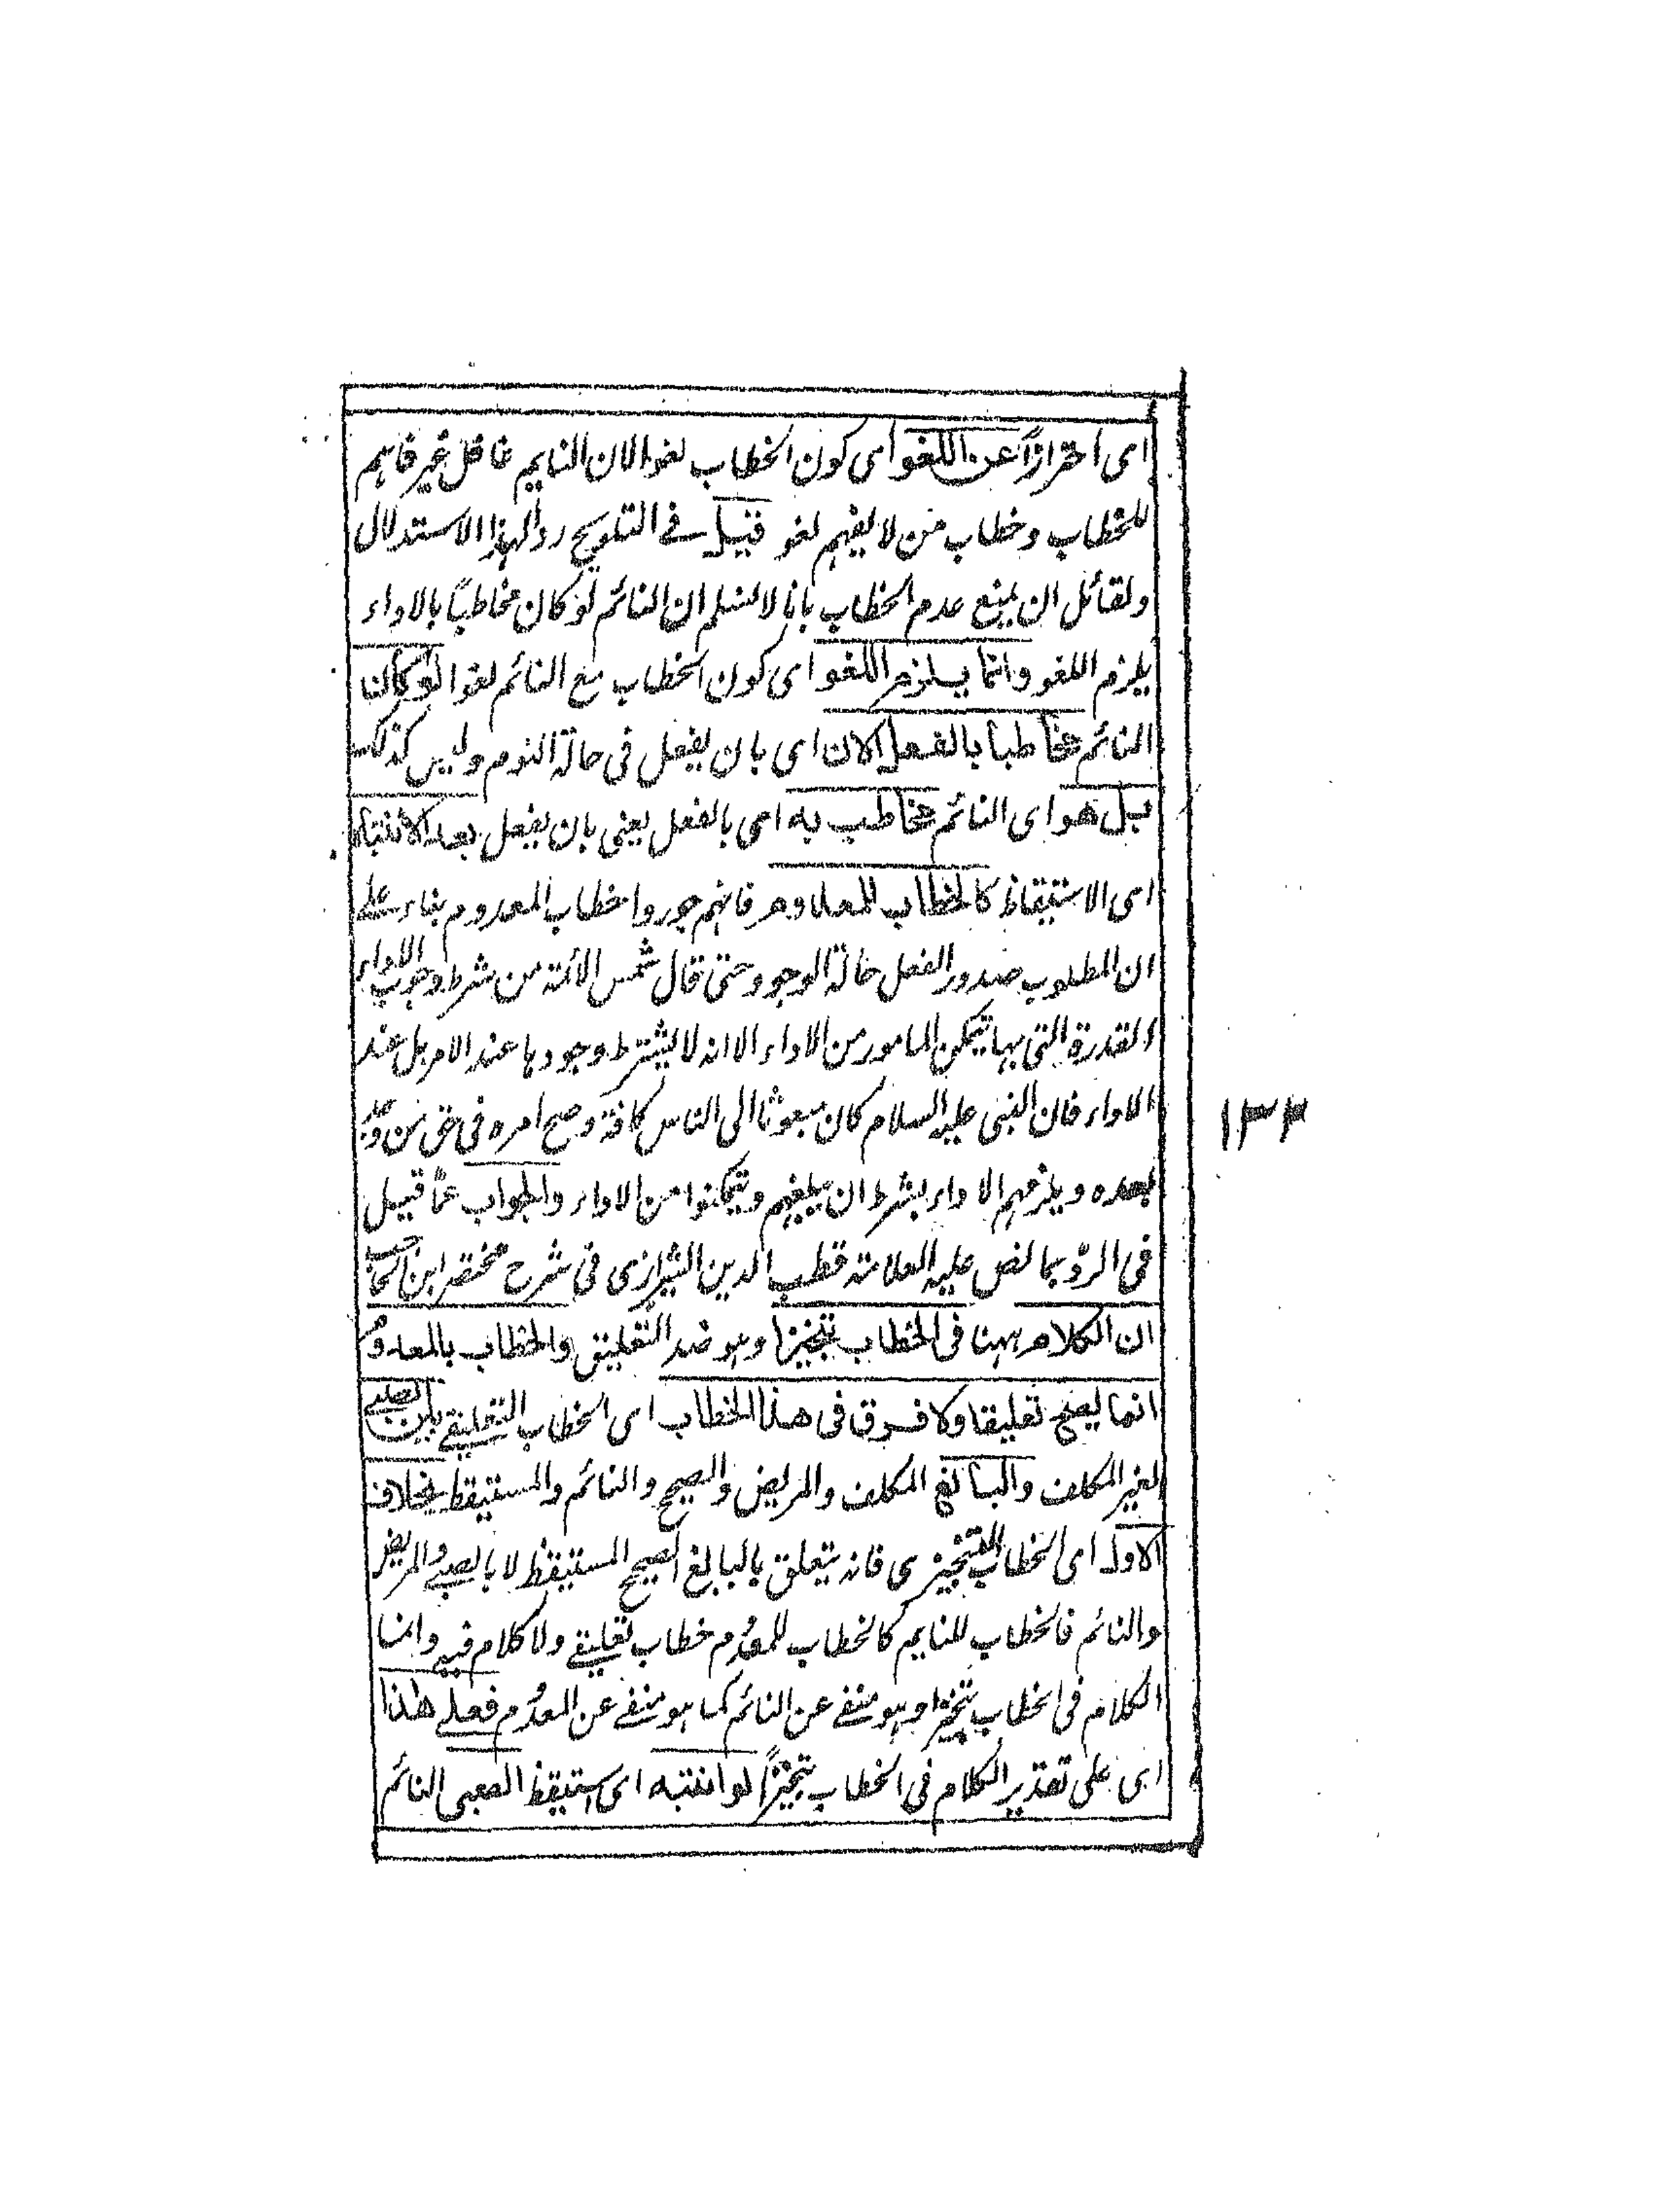 اى احترازاً عن اللغو اى كون الخطاب لغوا لان النايم غافل غير فاہم
للخطاب وخطاب من لا يفہم لغو قيل فے التلويح رداً لہذا الاستدلال
ولقائل ان يمنع عدم الخطاب بانا لا نسلم ان النائم لو كان مخاطباً بالاداء
يلزم اللغو وانما يلزم اللغو اى كون الخطاب مع النائم لغوا لو كان
النائم مخاطبا بالفعل الان اى بان يفعل فى حالة النوم وليس كذلك
بل هو اى النائم مخاطب به اى بالفعل يعنى بان يفعل بعد الانتباه
اى الاستيقاظ كالخطاب للمعدوم فانہم جوزوا خطاب المعدوم بناء علے
ان المطلوب صدور الفعل حالة الوجود حتى قال شمس الائمة من شرط وجوب الاداء
القدرة التى بہا يتمكن المامور من الاداء الا انه لا يشترط وجودہا عند الامر بل عند
الاداء فان النبى عليه السلام كان مبعوثا الى الناس كافة وصح امره فى حق من وجد
بعده ويلزمہم الاداء بشرط ان يبلغہم ويتمكنوا من الاداء والجواب عما قيل
فى الردّ بما نص عليه العلامة قطب الدين الشيرازى فى شرح مختصر ابن الحاجب
ان الكلام ہہنا فى الخطاب تنجيزا وہو ضد التعليق والخطاب بالمعدوم
انما يصح تعليقا ولا فرق فى هذا الخطاب اى الخطاب التعليقے بين الصبے
الغير المكلف والبالغ المكلف والمريض والصحيح والنائم والمستيقظ بخلاف
الاول اى الخطاب التنجيزى فانه يتعلق بالبالغ الصحيح المستيقظ لا بالصبے والمريض
والنائم فالخطاب للنايم كالخطاب للمعدوم خطاب تعليقے ولا كلام فيه وانما
الكلام فى الخطاب تنجيزا وہو منفے عن النائم كما ہو منفے عن المعدوم فعلے هذا
اى على تقدير الكلام فى الخطاب تنجيزاً لو انتبه اى استيقظ الصبى النائم
١٣٣